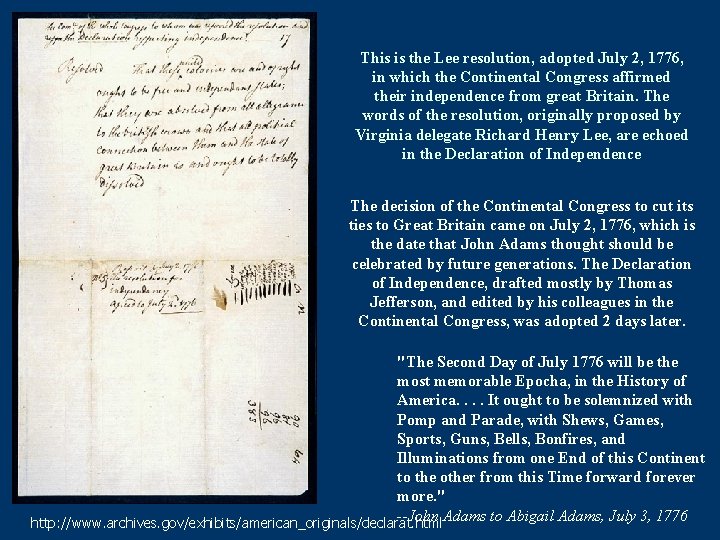 the Declaration respecting independence. 17
Resolved That these colonies are and of right
ought to be free and independant states;
that they are absolved from all allegiance
to the british crown and that all political
connection between them and the state of
great britain is and ought to be totally
dissolved
No 5 the resolution for
independancy
agreed to July 2. 1776
This is the Lee resolution, adopted July 2, 1776,
in which the Continental Congress affirmed
their independence from great Britain. The
words of the resolution, originally proposed by
Virginia delegate Richard Henry Lee, are echoed
in the Declaration of Independence
The decision of the Continental Congress to cut its
ties to Great Britain came on July 2, 1776, which is
the date that John Adams thought should be
celebrated by future generations. The Declaration
of Independence, drafted mostly by Thomas
Jefferson, and edited by his colleagues in the
Continental Congress, was adopted 2 days later.
"The Second Day of July 1776 will be the
most memorable Epocha, in the History of
America. . . . It ought to be solemnized with
Pomp and Parade, with Shews, Games,
Sports, Guns, Bells, Bonfires, and
Illuminations from one End of this Continent
to the other from this Time forward forever
more."
--John Adams to Abigail Adams, July 3, 1776
http: //www. archives. gov/exhibits/american_originals/declarat. html